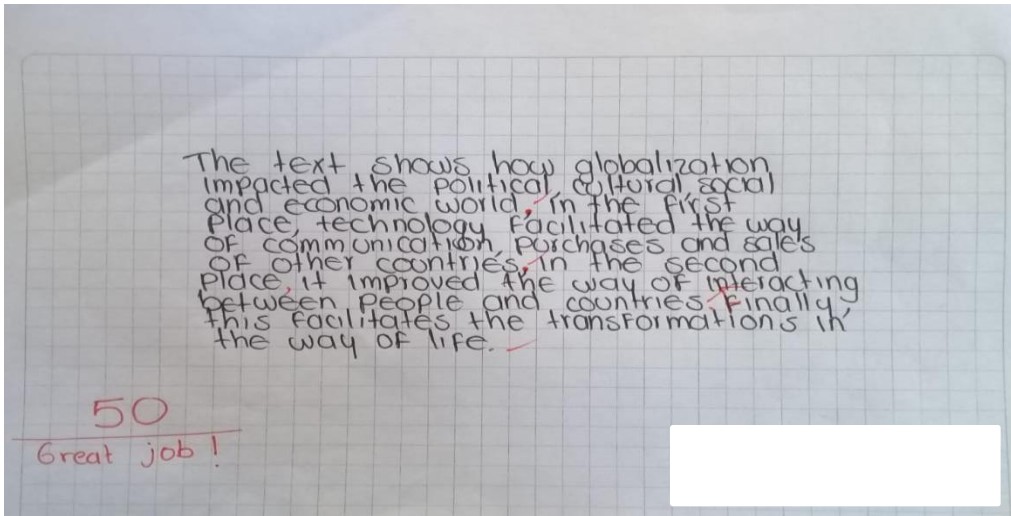 The text shows how globalization
impacted the political, cultural, social
and economic world, in the first
place, technology facilitated the way
of communication, purchases and sales
of other countries, in the second
place, it improved the way of interacting
between people and countries. Finally,
this facilitates the transformations in
the way of life.
50
Great job!